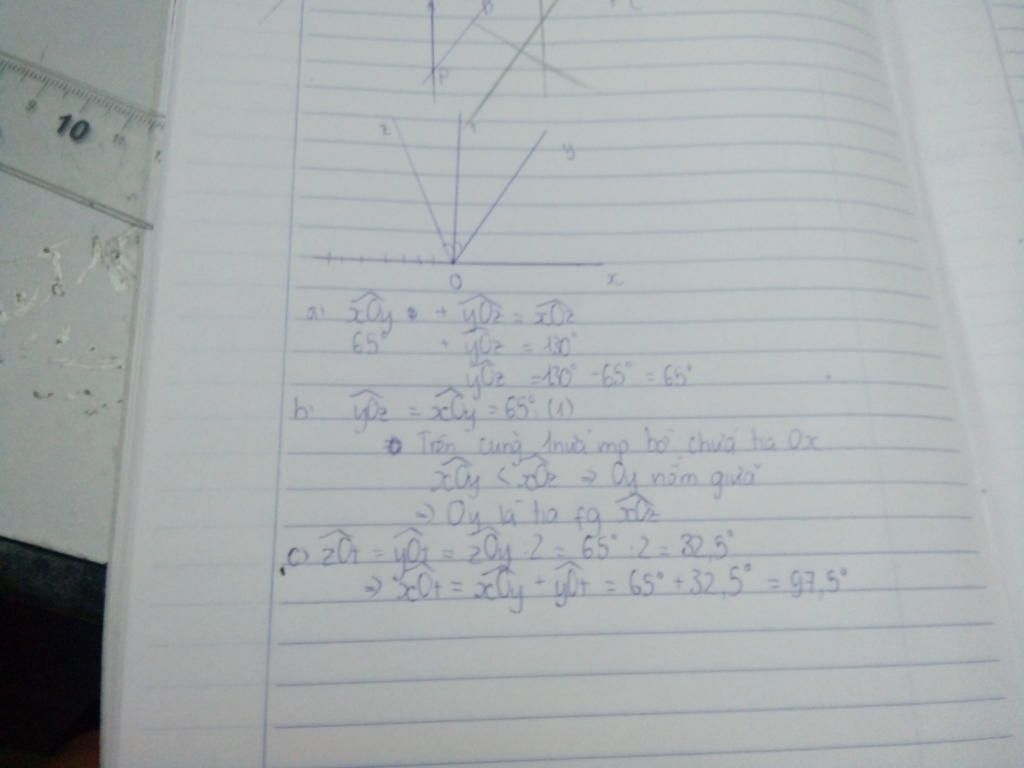 9 10 11
B
P
z t y
O x
a) xOy + yOz = xOz
65° + yOz = 130°
yOz = 130° - 65° = 65°
b. yOz = xOy = 65° (1)
Trên cùng 1 nửa mp bờ chứa tia Ox
xOy < xOz ⇒ Oy nằm giữa
⇒ Oy là tia fg xOz
c) zOt = yOt = zOy : 2 = 65° : 2 = 32,5°
⇒ xOt = xOy + yOt = 65° + 32,5° = 97,5°